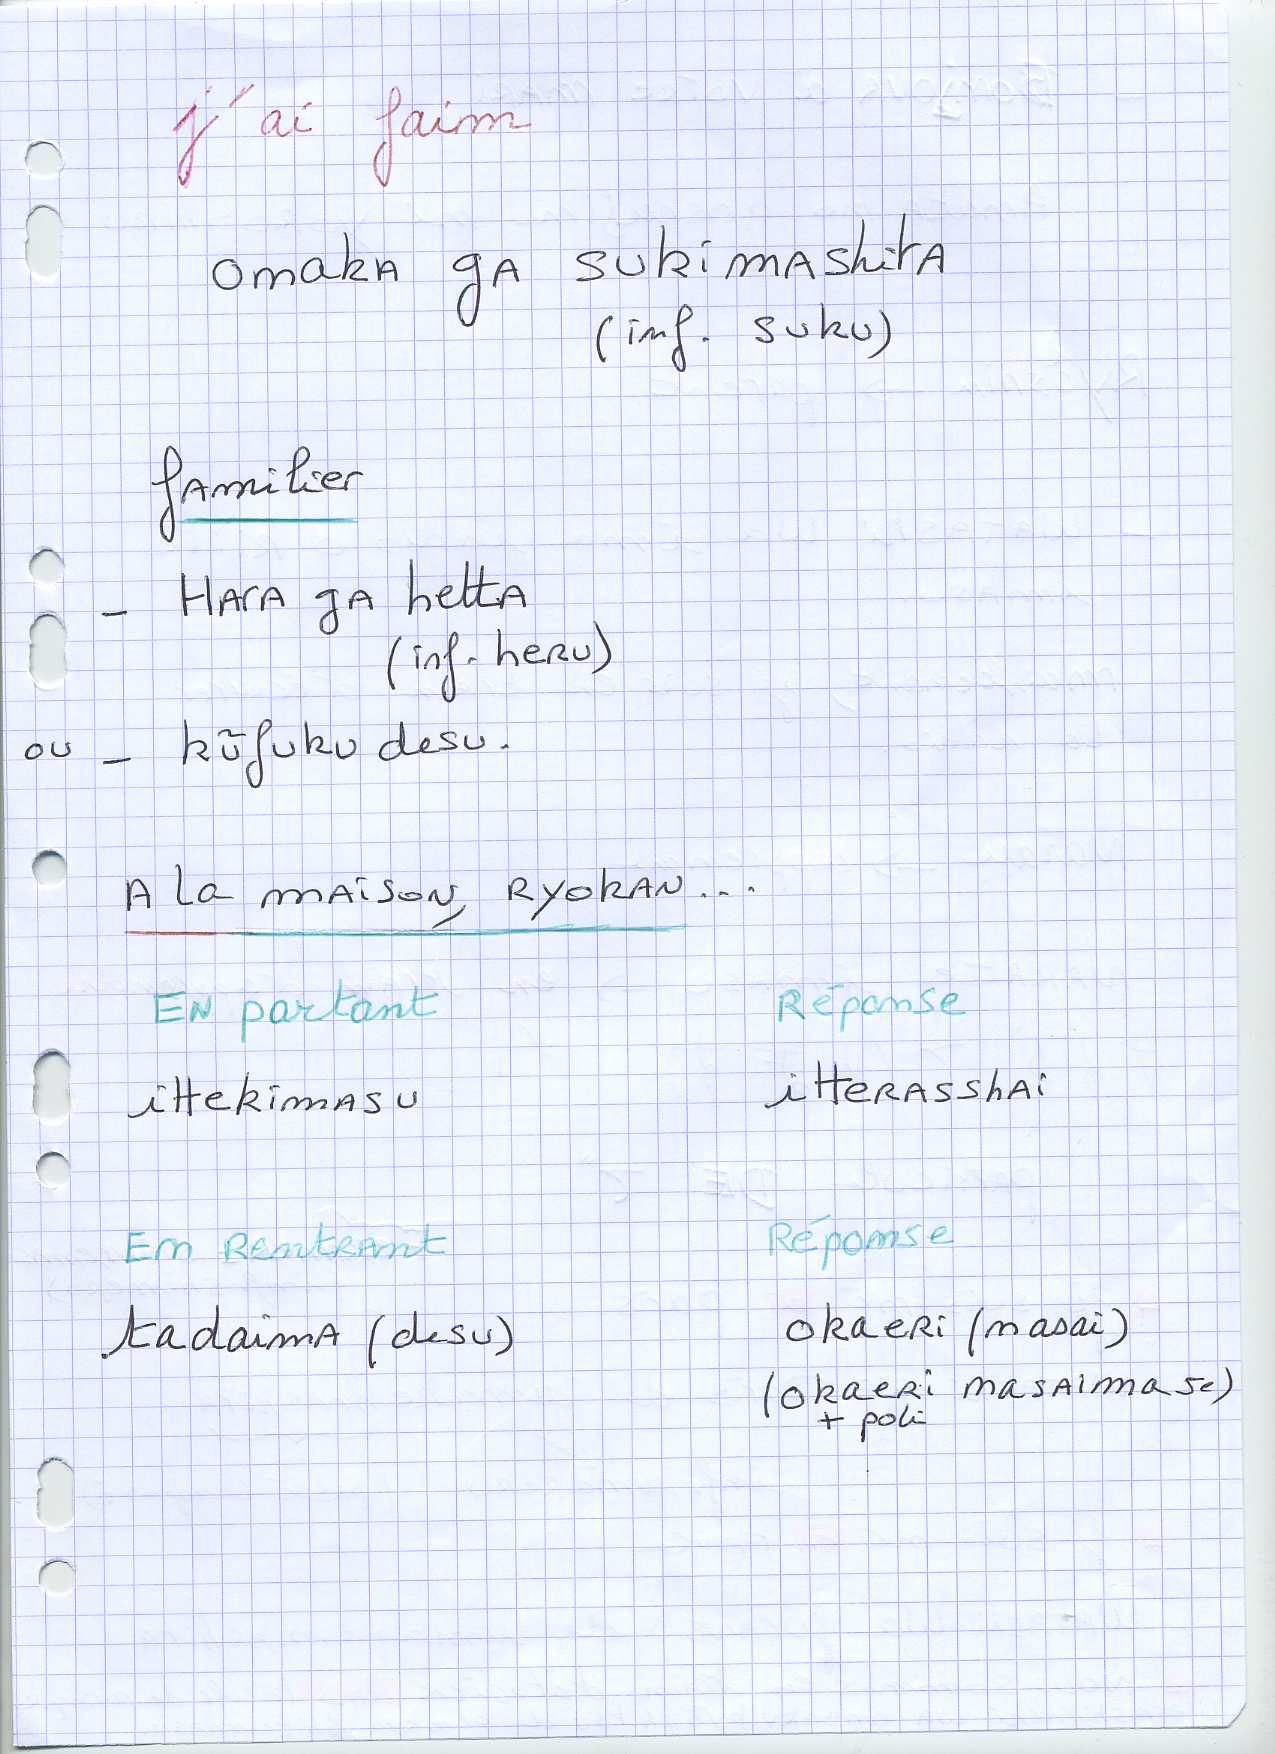 j'ai faim
onaka ga sukimashita
(inf. suku)
familier
- Hara ga hetta
(inf. heru)
ou - kūfuku desu.
A la maison, RYOKAN...
En partant Réponse
ittekimasu itterasshai
En Rentrant Réponse
tadaima (desu) okaeri (nasai)
(okaeri nasaimase)
+ poli